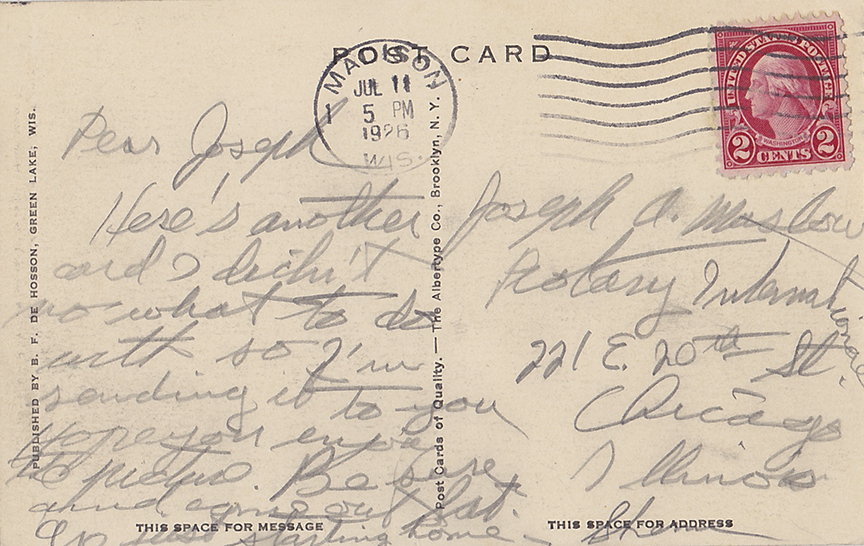 POST CARD
MADISON
JUL 11
5 PM
1926
WIS.
UNITED STATES POSTAGE
WASHINGTON
2 CENTS 2
PUBLISHED BY B. F. DE HOSSON, GREEN LAKE, WIS.
Post Cards of Quality. — The Albertype Co., Brooklyn, N. Y.
Dear Joseph
Here's another
card I didn't
no what to do
with so I'm
sending it to you
Hope you enjoy
the picture. Be sure
and come out Sat.
I'm just starting home
THIS SPACE FOR MESSAGE
Joseph A. Maslow
Rotary International
221 E. 20th St.
Chicago
Illinois
THIS SPACE FOR ADDRESS